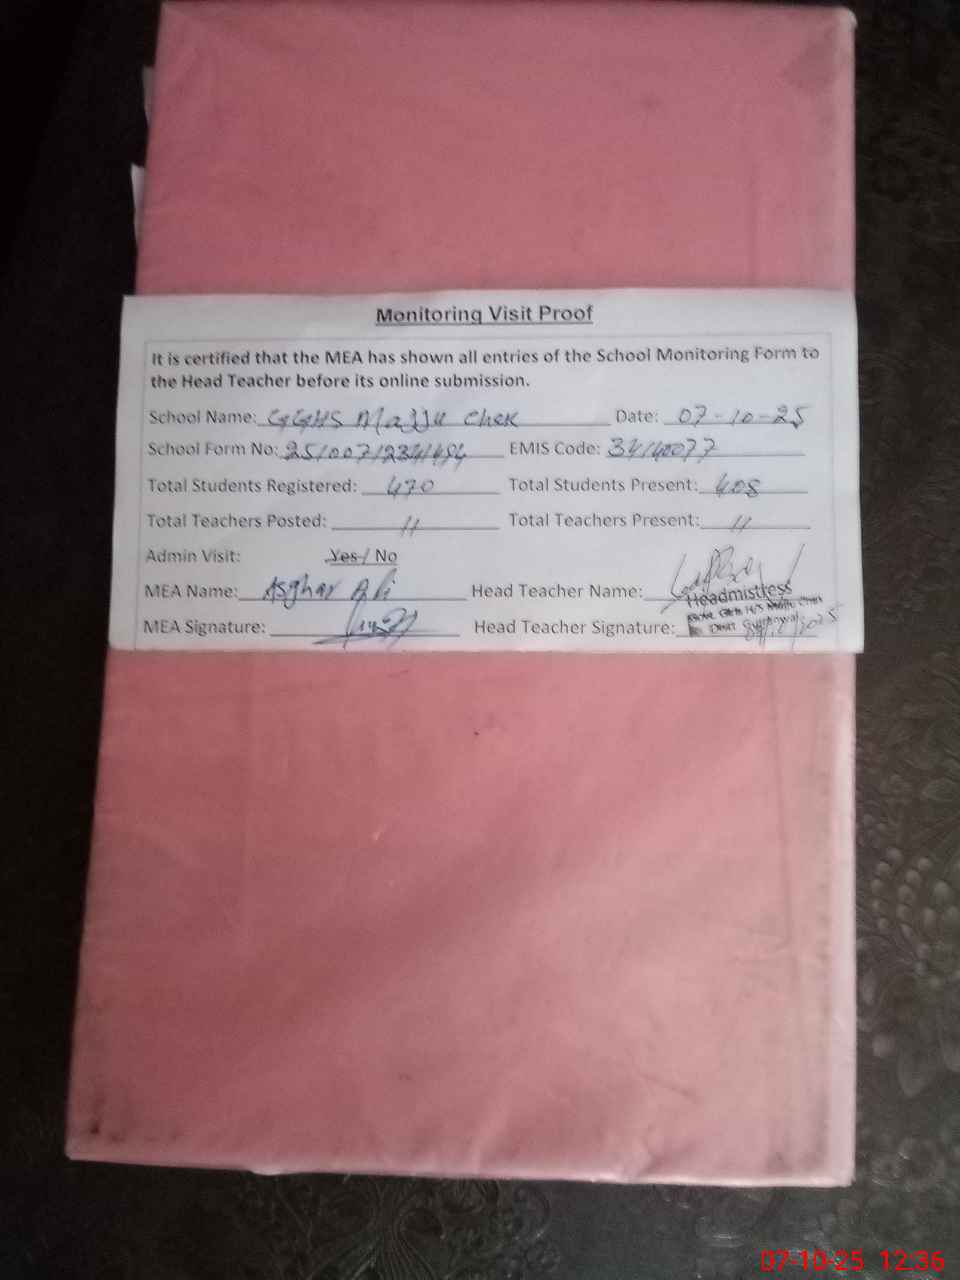 Monitoring Visit Proof
It is certified that the MEA has shown all entries of the School Monitoring Form to
the Head Teacher before its online submission.
School Name: GGHS Majju Chak Date: 07-10-25
School Form No: EMIS Code: 34140077
Total Students Registered: 470 Total Students Present: 408
Total Teachers Posted: 11 Total Teachers Present: 11
Admin Visit: Yes / No
MEA Name: Asghar Ali Head Teacher Name:
Headmistress
Govt. Girls H/S Majju Chak
MEA Signature: Head Teacher Signature:
07-10-25 12:36